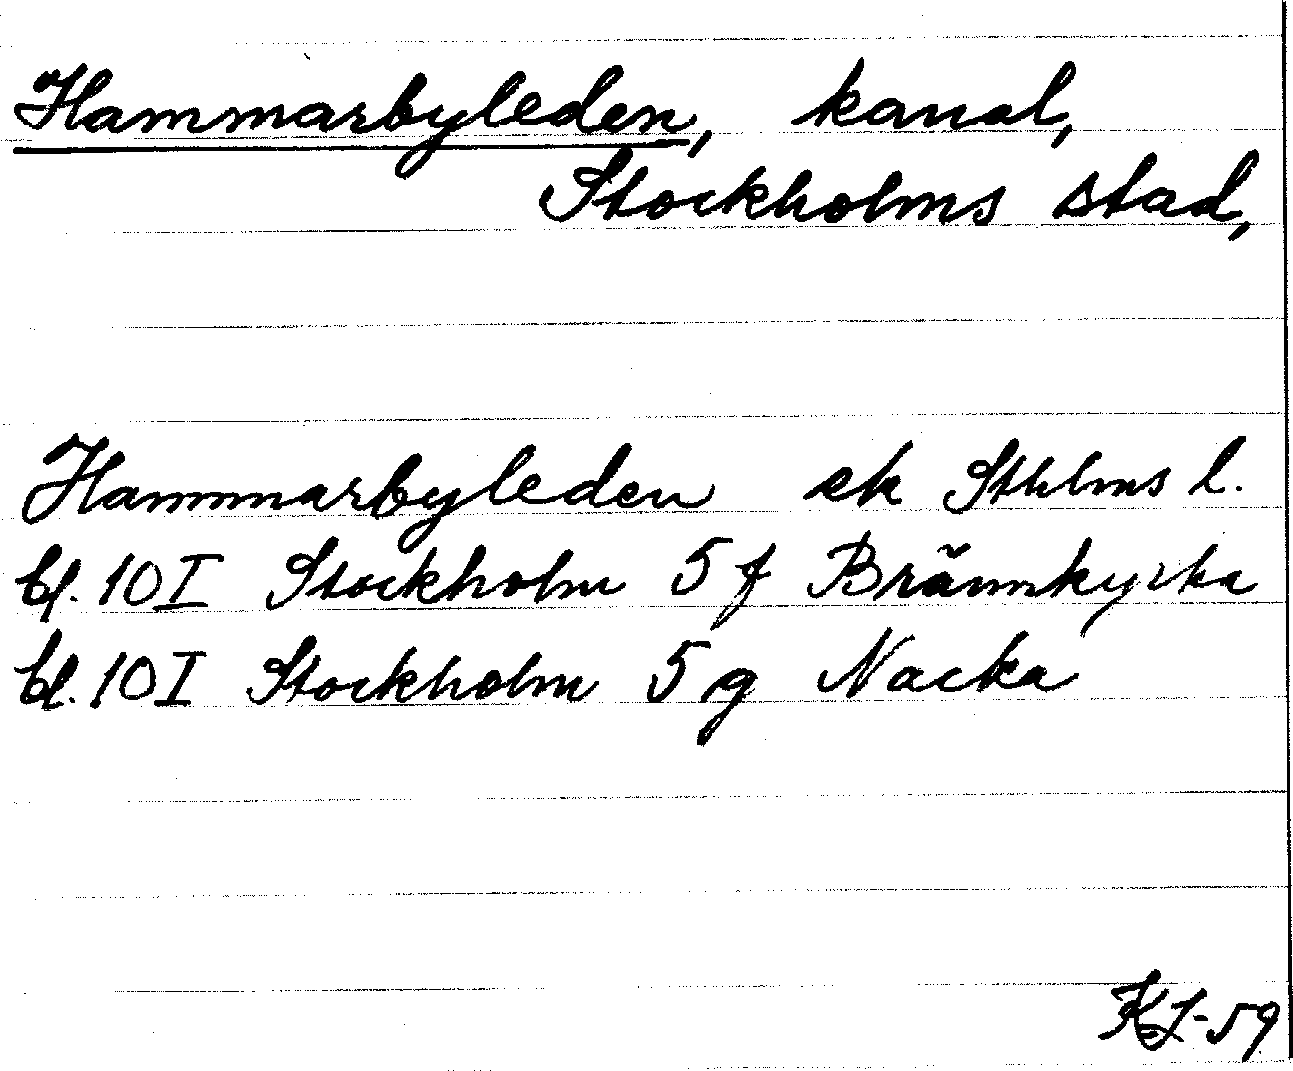 Hammarbyleden, kanal,
Stockholms stad,
Hammarbyleden ek Sthlms l.
bl. 10 I Stockholm 5 f Brännkyrka
bl. 10 I Stockholm 5 g Nacka
KL-59